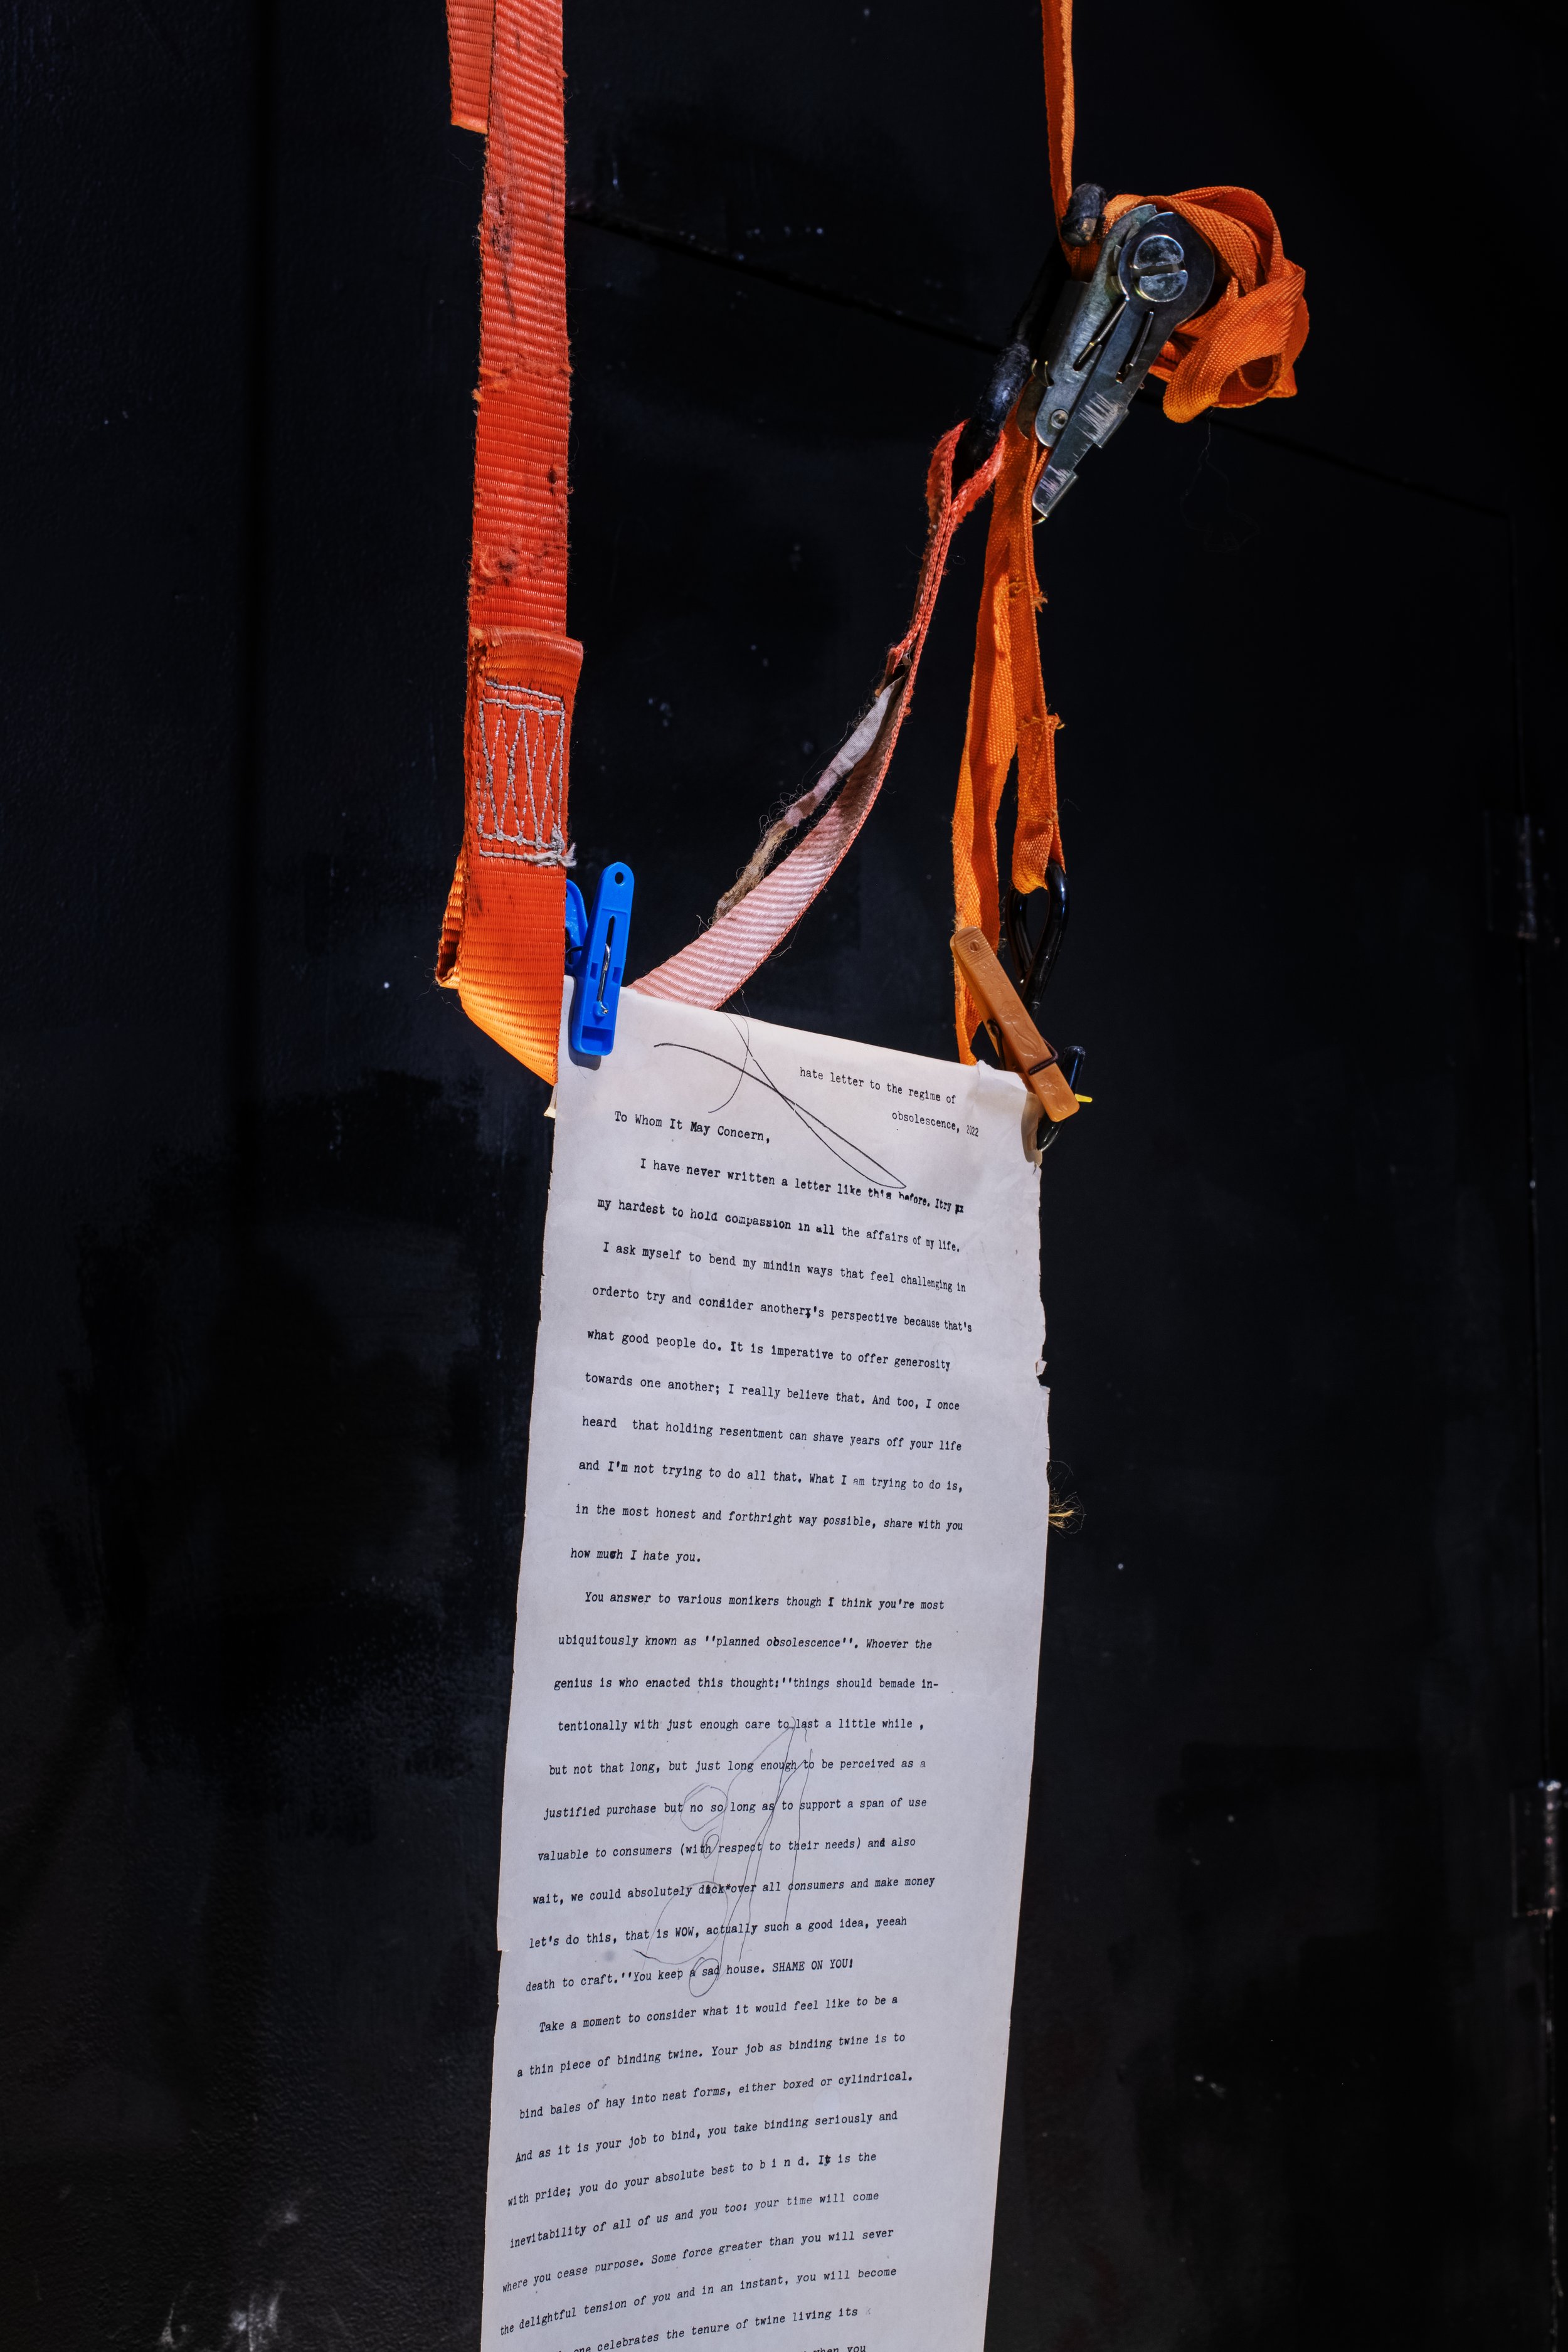 hate letter to the regime of
obsolescence, 2022
To Whom It May Concern,
I have never written a letter like this before. Itry
my hardest to hold compassion in all the affairs of my life.
I ask myself to bend my mindin ways that feel challenging in
orderto try and consider another's perspective because that's
what good people do. It is imperative to offer generosity
towards one another; I really believe that. And too, I once
heard that holding resentment can shave years off your life
and I'm not trying to do all that. What I am trying to do is,
in the most honest and forthright way possible, share with you
how much I hate you.
You answer to various monikers though I think you're most
ubiquitously known as ''planned obsolescence''. Whoever the
genius is who enacted this thought:''things should bemade in-
tentionally with just enough care to last a little while ,
but not that long, but just long enough to be perceived as a
justified purchase but no so long as to support a span of use
valuable to consumers (with respect to their needs) and also
wait, we could absolutely dick*over all consumers and make money
let's do this, that is WOW, actually such a good idea, yeeah
death to craft.''You keep a sad house. SHAME ON YOU!
Take a moment to consider what it would feel like to be a
a thin piece of binding twine. Your job as binding twine is to
bind bales of hay into neat forms, either boxed or cylindrical.
And as it is your job to bind, you take binding seriously and
with pride; you do your absolute best to b i n d. It is the
inevitability of all of us and you too: your time will come
where you cease purpose. Some force greater than you will sever
the delightful tension of you and in an instant, you will become
one celebrates the tenure of twine living its
when you